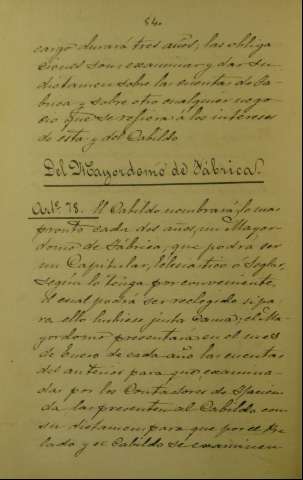 84.
cargo durará tres años, las obliga
ciones son: examinar y dar su
dictamen sobre las cuentas de Fa-
brica y sobre otro cualquier nego
cio que se refiera á los intereses
de ésta y del Cabildo
Del Mayordomo de Fábrica.
Art.º 78. El Cabildo nombrará, lo mas
pronto cada dos años, un Mayor-
domo de Fábrica, que podrá ser
un Capitular, Eclesiastico ó Seglar,
segun lo tenga por conveniente,
el cual podrá ser reelegido si pa-
ra ello hubiese justa causa; el Ma-
yordomo presentará en el mes
de Enero de cada año las cuentas
del anterior para que, examina-
das por los Contadores de Hacien
da las presenten al Cabildo con
su dictamen para que por el Pre
lado y el Cabildo se examinen